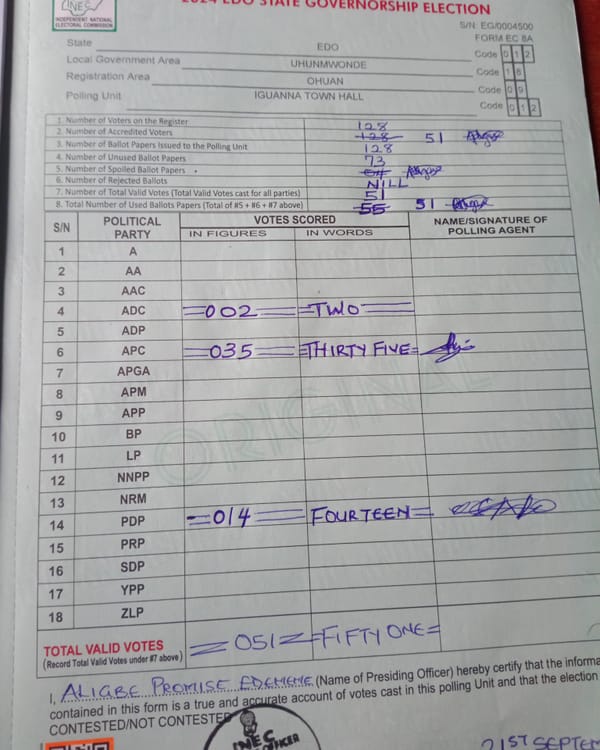 INEC
INDEPENDENT NATIONAL
ELECTORAL COMMISSION
2024 EDO STATE GOVERNORSHIP ELECTION
S/N: EG/0004500
FORM EC 8A
State EDO Code 0 1 2
Local Government Area UHUNMWONDE Code 1 8
Registration Area OHUAN Code 0 9
Polling Unit IGUANNA TOWN HALL Code 0 1 2
1. Number of Voters on the Register 128
2. Number of Accredited Voters 128 51
3. Number of Ballot Papers Issued to the Polling Unit 128
4. Number of Unused Ballot Papers 73
5. Number of Spoiled Ballot Papers 04
6. Number of Rejected Ballots NILL
7. Number of Total Valid Votes (Total Valid Votes cast for all parties) 51
8. Total Number of Used Ballots Papers (Total of #5 + #6 + #7 above) 55 51
S/N POLITICAL PARTY VOTES SCORED NAME/SIGNATURE OF POLLING AGENT
IN FIGURES IN WORDS
1 A
2 AA
3 AAC
4 ADC =002= =TWO=
5 ADP
6 APC =035= =THIRTY FIVE=
7 APGA
8 APM
9 APP
10 BP
11 LP
12 NNPP
13 NRM
14 PDP =014= FOURTEEN=
15 PRP
16 SDP
17 YPP
18 ZLP
ORIGINAL
TOTAL VALID VOTES =051= =FIFTY ONE=
(Record Total Valid Votes under #7 above)
I, ALIGBE PROMISE EDEMEME (Name of Presiding Officer) hereby certify that the informa
contained in this form is a true and accurate account of votes cast in this polling Unit and that the election
CONTESTED/NOT CONTESTED
INEC
OFFICER
21ST SEPTEM